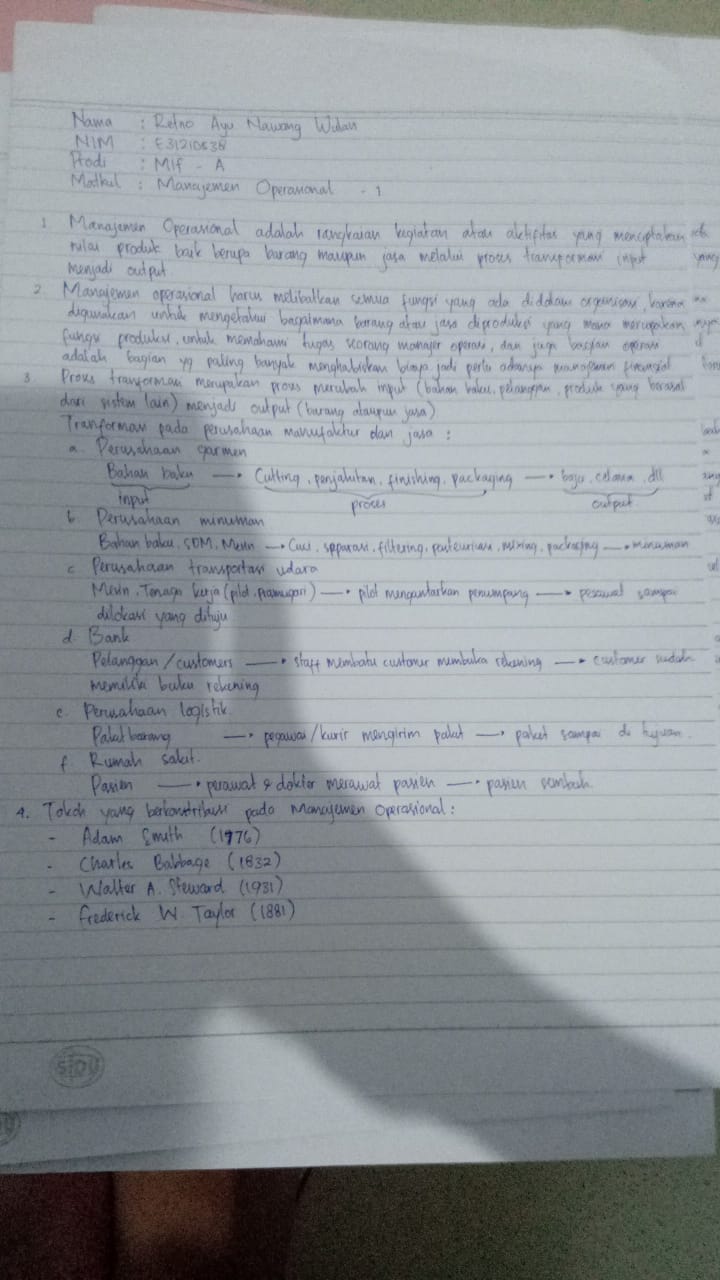 Nama : Retno Ayu Nawang Wulan
NIM : E31210638
Prodi : MIF - A
Matkul : Manajemen Operasional - 1
1 Manajemen Operasional adalah rangkaian kegiatan atau aktifitas yang menciptakan
nilai produk baik berupa barang maupun jasa melalui proses transformasi input
menjadi output
2. Manajemen operasional harus melibatkan semua fungsi yang ada didalam organisasi, karena
digunakan untuk mengetahui bagaimana barang atau jasa diproduksi yang mana merupakan
fungsi produksi, untuk memahami tugas seorang manajer operasi, dan juga bagian operasi
adalah bagian yg paling banyak menghabiskan biaya jadi perlu adanya manajemen finansial
3 Proses transformasi merupakan proses merubah input (bahan baku, pelanggan, produk yang berasal
dari sistem lain) menjadi output (barang ataupun jasa)
Tranformasi pada perusahaan manufaktur dan jasa :
a. Perusahaan garmen
Bahan baku → Cutting, penjahitan, finishing, packaging → baju, celana, dll
input proses output
b. Perusahaan minuman
Bahan baku, SDM, Mesin → Cuci, spparasi, filtering, pasteurisasi, mixing, packaging → minuman
c. Perusahaan transportasi udara
Mesin, Tenaga kerja (pilot, pramugari) → pilot mengantarkan penumpang → pesawat sampai
dilokasi yang dituju
d. Bank
Pelanggan / customers → staff membatu customer membuka rekening → customer sudah
memiliki buku rekening
e. Perusahaan logistik.
Paket barang → pegawai / kurir mengirim paket → paket sampai di tujuan.
f. Rumah sakit.
Pasien → perawat & dokter merawat pasien → pasien sembuh.
4. Tokoh yang berkontribusi pada Manajemen Operasional :
- Adam Smith (1776)
- Charles Babbage (1832)
- Walter A. Steward (1931)
- Frederick W. Taylor (1881)
SIDU